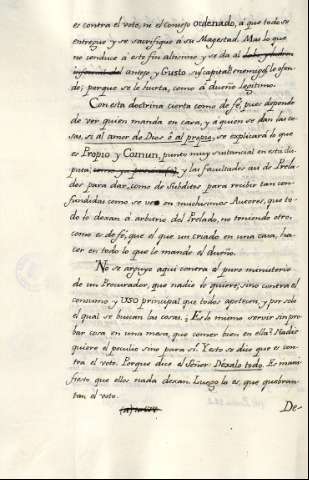 es contra el voto, ni el consejo ordenado, á que todo se
entregue y se sacrifique á su Magestad. Mas lo que
no conduce á este fin altissimo, y se da al
antojo, y Gusto su capital enemigo, le ofen-
de; porque se le hurta, como á dueño legitimo.
Con esta doctrina cierta como de fé, pues depende
de ver quien manda en casa, y á quien se dan las co-
sas, si al amor de Dios ó al propio, se explicará lo que
es Propio y Comun, punto muy sustancial en esta dis-
puta; y las facultades asi de Prela-
dos para dar, como de Subditos para recibir tan con-
fundidas como se ve en muchissimos Autores, que to-
do lo dexan á arbitrio del Prelado, no teniendo otro,
como es de fé, que el que un criado en una casa, ha-
cer en todo lo que le mande el dueño.
No se arguye aqui contra el puro ministerio
de un Procurador, que nadie lo quiere; sino contra el
consumo y uso principal que todos apetecen, y por solo
el qual se buscan las cosas. ¿Es lo mismo servir sin pro-
bar cosa en una mesa, que comer bien en ella? Nadie
quiere el peculio sino para sí. Y esto se dice que es con-
tra el voto. Porque dice el Señor: Déxalo todo. Es mani-
fiesto, que ellos nada dexan. Luego lo es, que quebran-
tan el voto.
De-